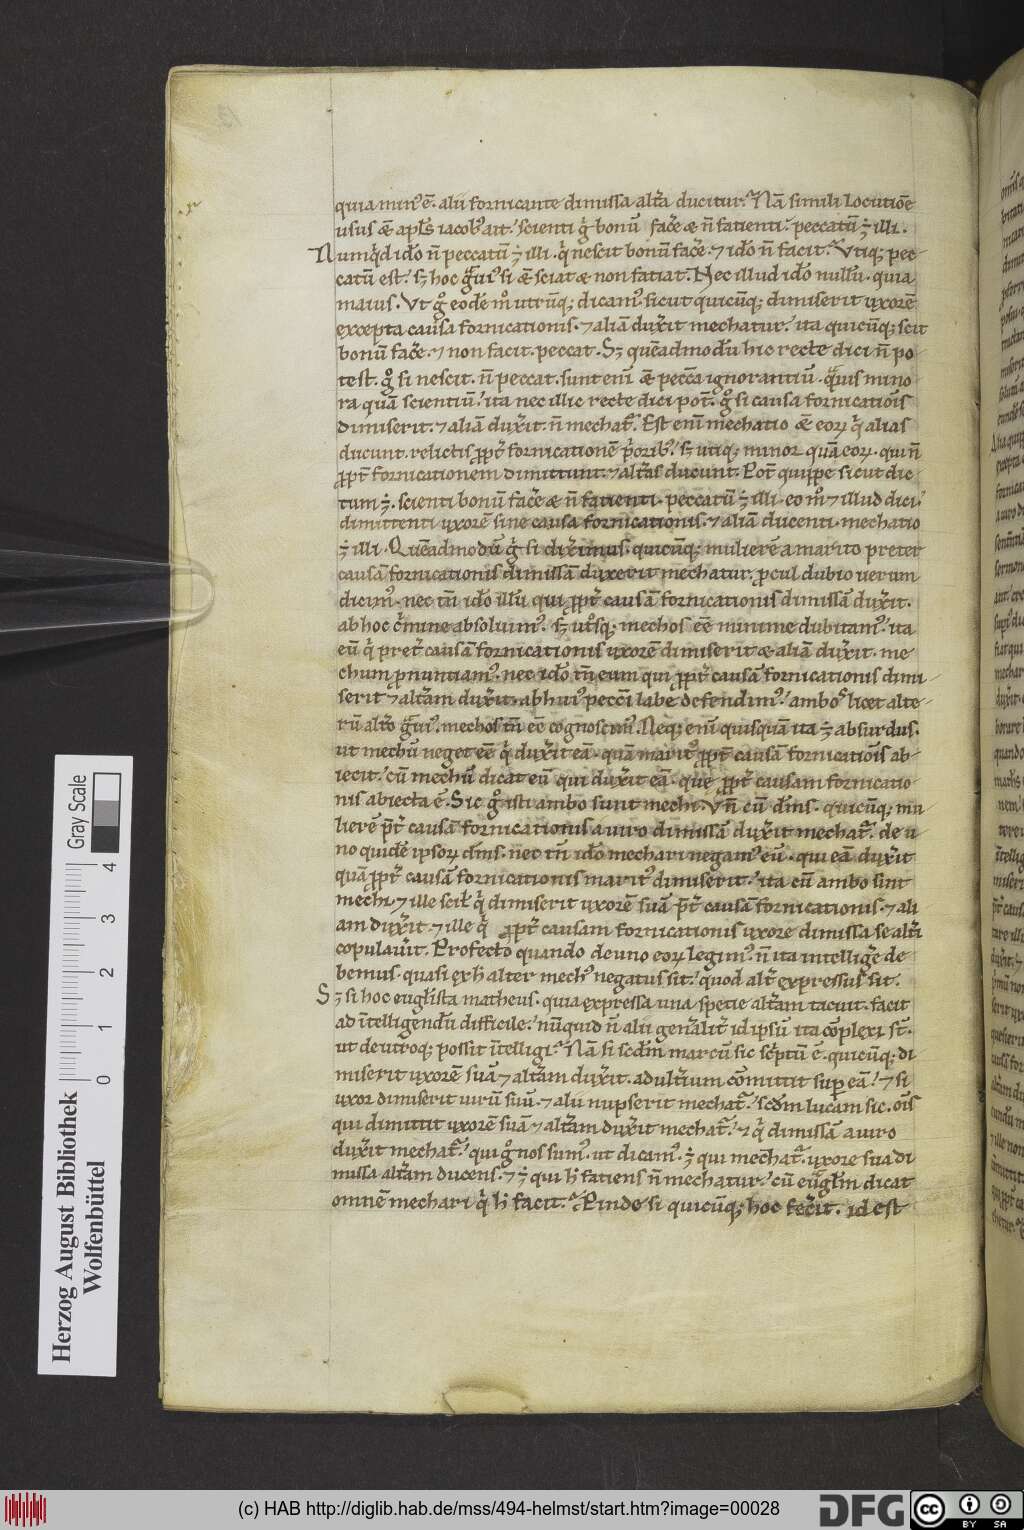 quia min᷒ ē. alii fornicante dimissa alt̄a ducitur. Nā simili locutiōe
usus ē apl̄s iacob᷒ ait. scienti g̊ bonū fac̄e & n̄ fatienti. peccatū ē illi.
Numq̇d idō n̄ peccatū ē illi. q̇ nescit bonū fac̄e. ⁊ idō n̄ facit. Vtiq; pec
catū est. sȝ hoc gͣui᷒ si & sciat & non fatiat. Nec illud idō nullū. quia
maius. Vt g̊ eodē m̊ utrūq; dicam᷒. sicut quicūq; dimiserit uxorē
excepta causa fornicationis. ⁊ aliā duxit mechatur. ita quicūq; scit
bonū fac̄e. ⁊ non facit. peccat. Sȝ quēadmodū hic recte dici n̄ po
test. g̊ si nescit. n̄ peccat. sunt enī & pecc̄a ignorantiū. quāuis mino
ra quā scientiū. ita nec illic recte dici pot̄. g̊ si causa fornicatiōis
dimiserit. ⁊ aliā duxit. n̄ mechat᷒. Est enī mechatio & eoꝝ q̇ alias
ducunt. relictis ꝓpt̄ fornicationē p̄orib᷒. sȝ utiq; minor quā eoꝝ. qui n̄
ꝓpt̄ fornicationem dimittunt. ⁊ alt̄as ducunt. Pot̄ quippe sicut dic
tum ē. scienti bonū fac̄e & n̄ fatienti. peccatū ē illi. eo m̊ ⁊ illud dici.
dimittenti uxorē sine causa fornicationis. ⁊ aliā ducenti. mechatio
ē illi. Quēadmodū g̊ si diximus. quicūq; mulierē a marito preter
causā fornicationis dimissā duxerit mechatur. ꝓcul dubio uerum
dicim᷒. nec tn̄ idō illū qui ꝓpt̄ causā fornicationis dimissā duxit.
ab hoc c̄mine absoluim᷒. sȝ ut̊sq; mechos ēē minime dubitam᷒. ita
eū q̇ pret̄ causā fornicationis uxorē dimiserit & aliā duxit. me
chum ꝓnuntiam᷒. nec idō tn̄ eum qui ꝓpt̄ causā fornicationis dimi
serit ⁊ alt̄am duxit. ab hui᷒ pecc̄i labe defendim᷒. ambos licet alte
rū alt̊ gͣui᷒. mechos tn̄ ēē cognoscim᷒. Neq; enī quisquā ita ē absurdus.
ut mechū neget ēē q̇ duxit eā. quā marit᷒ ꝓpt̄ causā fornicatiōis ab
iecit. cū mechū dicat eū qui duxit eā. que ꝓpt̄ causam fornicatio
nis abiecta ē. Sic g̊ isti ambo sunt mechi. Vn̄ cū dm̄s. quicūq; mu
lierē p̄t̄ causā fornicationis a uiro dimissā duxit mechat᷒. de u
no quidē ipsoꝝ dm̄s. nec tn̄ idō mechari negam᷒ eū. qui eā duxit
quā ꝓpt̄ causā fornicationis marit᷒ dimiserit. ita cū ambo sint
mechi. ⁊ ille scil̄ q̇ dimiserit uxorē suā p̄t̄ causā fornicationis. ⁊ ali
am duxit. ⁊ ille q̇ ꝓpt̄ causam fornicationis uxore dimissa se alt̄i
copulauit. Profecto quando de uno eoꝝ legim᷒. n̄ ita intellige̅ de
bemus. quasi ex h̊ alter mech᷒ negatus sit. quod alt̄ expressus sit.
Sȝ si hoc euḡlista matheus. quia expressa una spetie alt̄am tacuit. facit
ad īntelligendū difficile. nūquid n̄ alii gen̄alit̄ id ipsū ita cōplexi st̄.
ut de utroq; possit īntelligi. Nā si scd̄m marcū sic sc̄ptū ē. quicūq; di
miserit uxorē suā ⁊ alt̄am duxit. adult̄ium cōmittit sup eā. ⁊ si
uxor dimiserit uirū suū. ⁊ alii nupserit mechat᷒. scd̄m lucam sic. oīs
qui dimittit uxorē suā ⁊ alt̄am duxit mechat᷒. ⁊ q̇ dimissā a uiro
duxit mechat᷒. qui g̊ nos sum᷒. ut dicam᷒. ē qui mechat᷒. uxore sua di
missa alt̄am ducens. ⁊ ē qui h̊ fatiens n̄ mechatur. cū euḡlm̄ dicat
omnē mechari q̇ h̊ facit. Proinde si quicūq; hoc fec̄it. id est
Herzog August Bibliothek
Wolfenbüttel
Gray Scale
0 1 2 3 4
(c) HAB http://diglib.hab.de/mss/494-helmst/start.htm?image=00028
DFG
cc BY SA